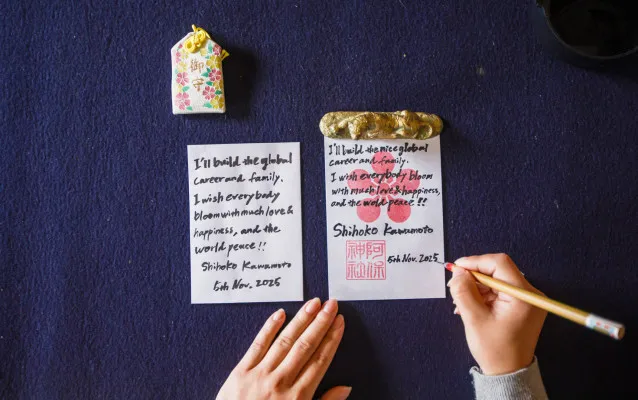 御
守
I'll build the global
career and family.
I wish everybody
bloom with much love &
happiness, and the
world peace!!
Shihoko Kawamoto
5th Nov. 2025
I'll build the nice global
career and family.
I wish everybody bloom
with much love & happiness,
and the wold peace!!
Shihoko Kawamoto
阿保
神社
5th Nov. 2025